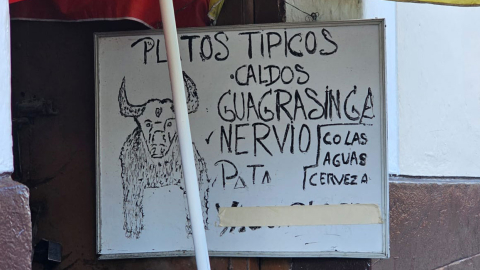 PLATOS TIPICOS
·CALDOS
GUAGRASINGA
NERVIO
PATA
COLAS
AGUAS
CERVEZA